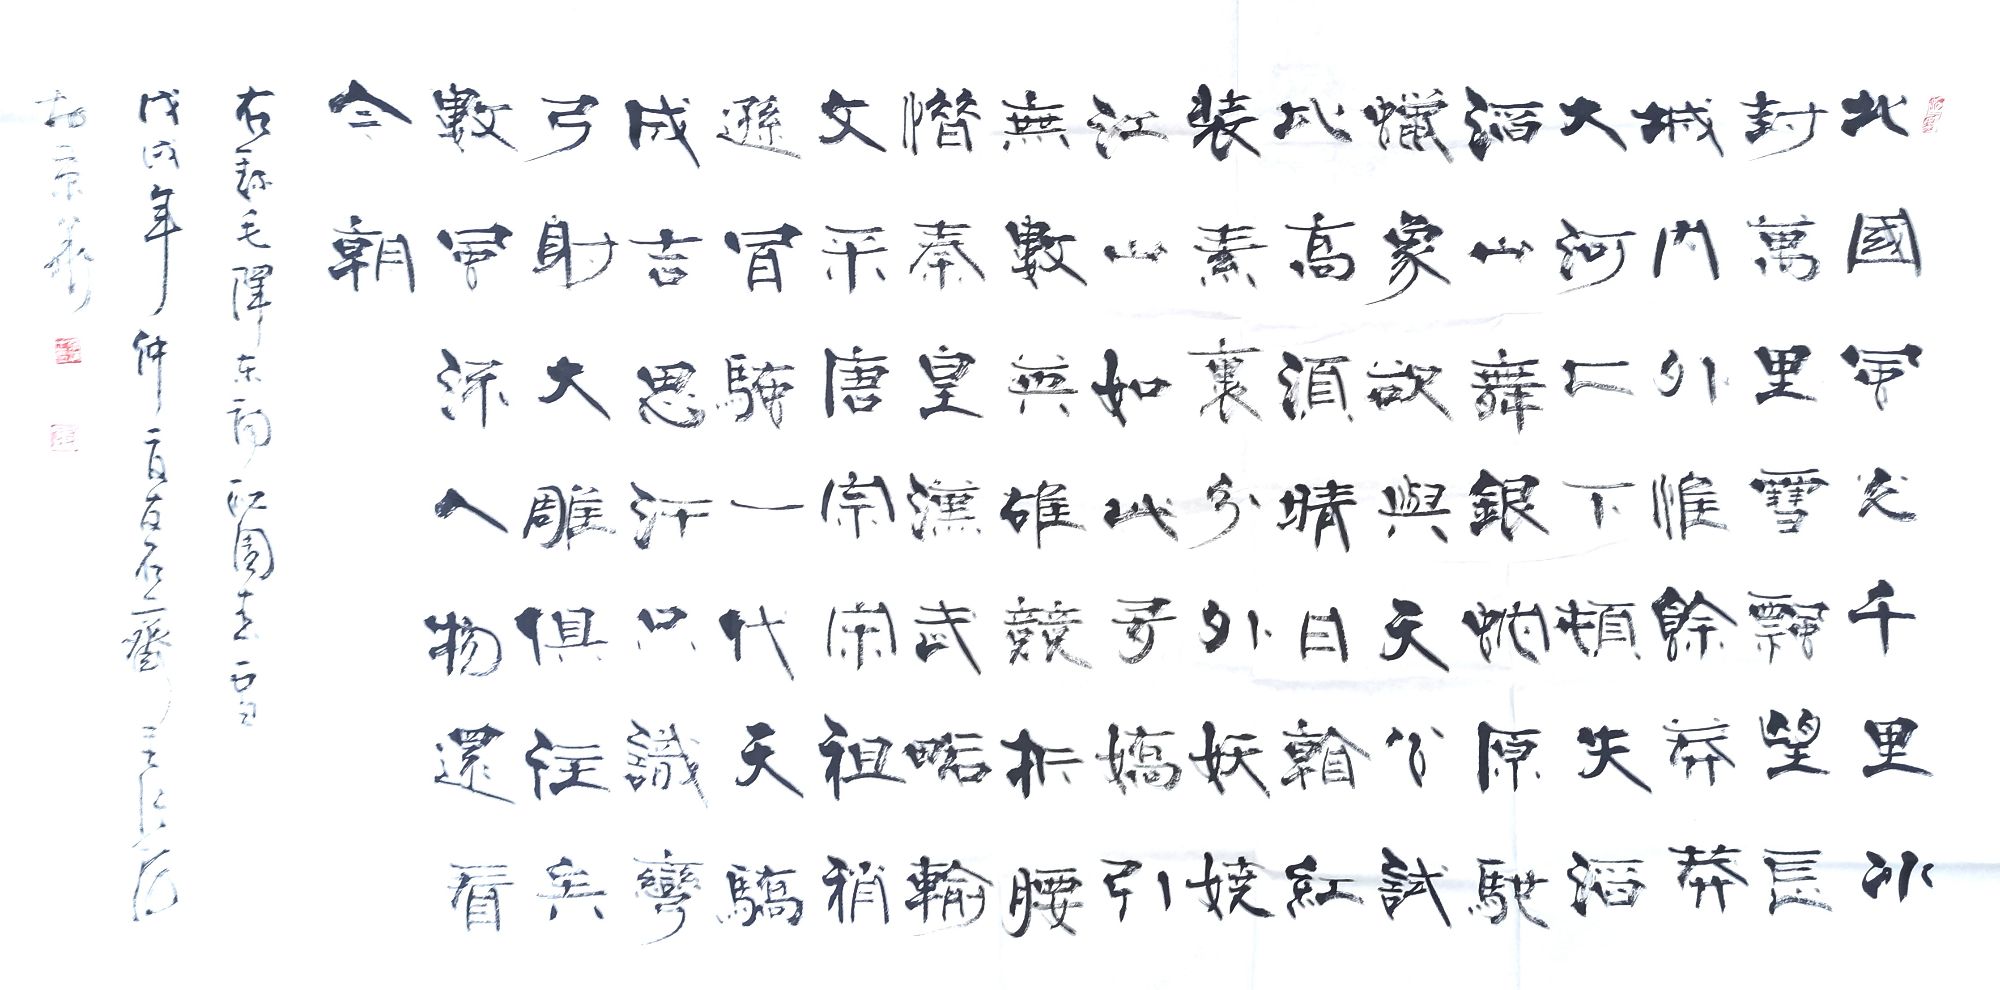 北國風光千里冰
封萬里雪飄望長
城內外惟餘莽莽
大河上下頓失滔
滔山舞銀蛇原馳
蠟象欲與天公試
比高須晴日看紅
裝素裹分外妖嬈
江山如此多嬌引
無數英雄競折腰
惜秦皇漢武略輸
文采唐宗宋祖稍
遜風騷一代天驕
成吉思汗只識彎
弓射大雕俱往矣
數風流人物還看
今朝
右錄毛澤东詞沁園春雪
戊戌年仲夏友石齋
於京華